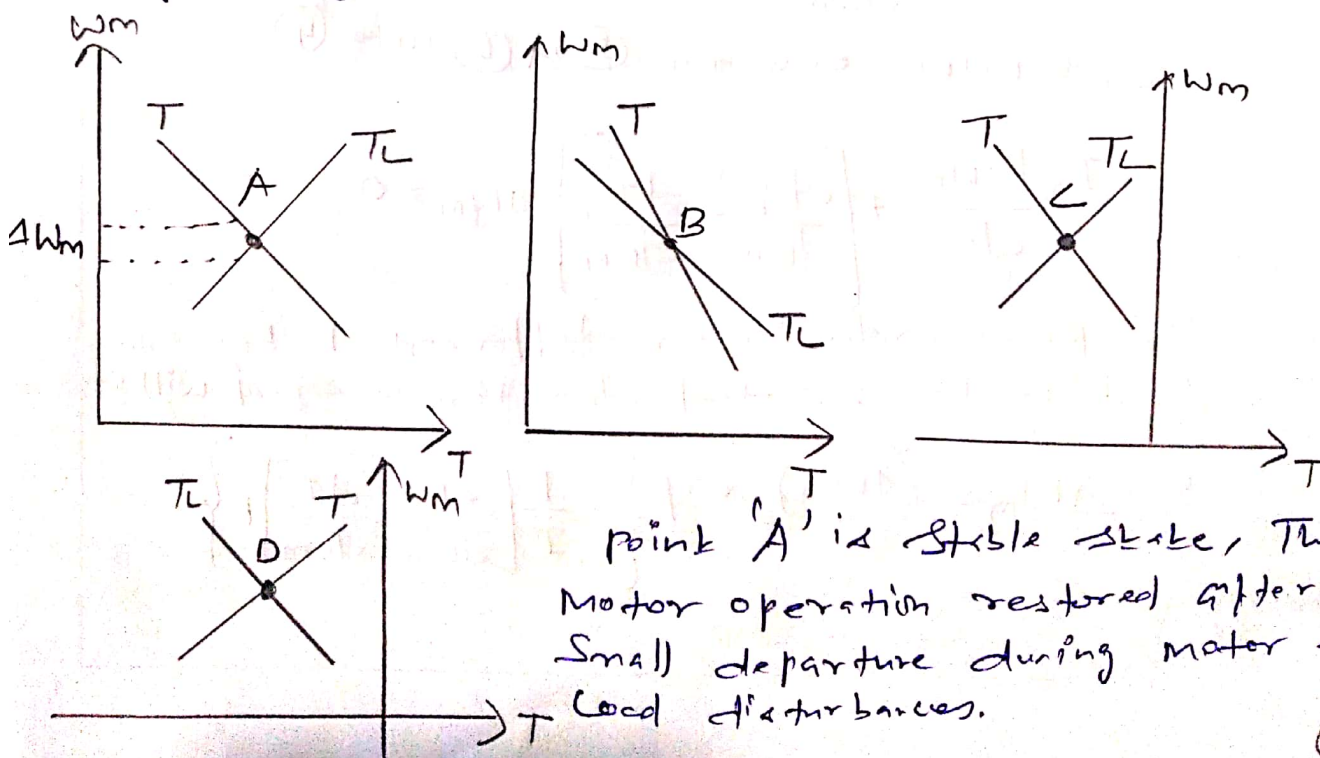 Wm
T
TL
A
ΔWm
T
Wm
T
B
TL
T
Wm
T
TL
C
T
TL
T
Wm
D
T
point 'A' is stable state, Th
Motor operation restored after
Small departure during motor
Load disturbances.